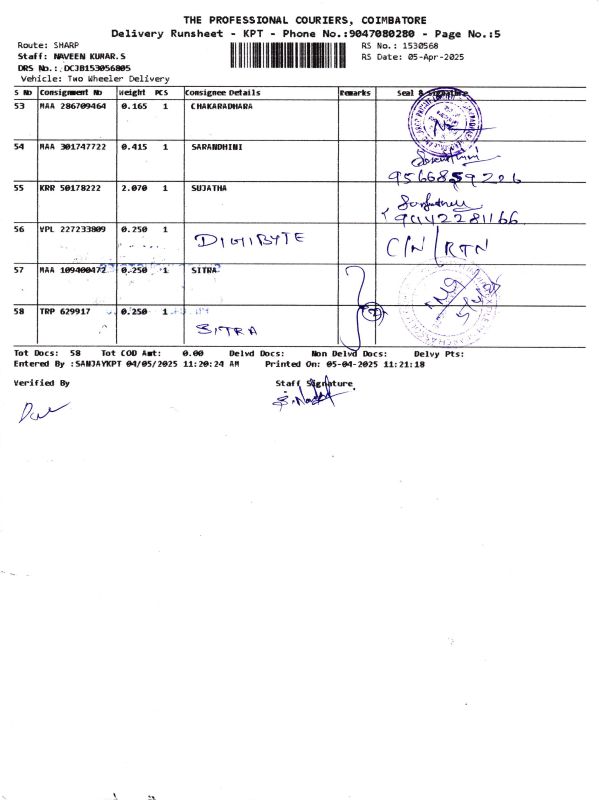 THE PROFESSIONAL COURIERS, COIMBATORE
Delivery Runsheet - KPT - Phone No.:9047080280 - Page No.:5
Route: SHARP RS No.: 1530568
Staff: NAVEEN KUMAR.S RS Date: 05-Apr-2025
DRS No.: DCJB153056805
Vehicle: Two Wheeler Delivery
S No Consignment No Weight PCS Consignee Details Remarks Seal & Signature
53 MAA 286709464 0.165 1 CHAKARADHARA
54 MAA 301747722 0.415 1 SARANDHINI
9566859226
55 KRR 50178222 2.070 1 SUJATHA
9042281166
56 VPL 227233809 0.250 1 DIGIBYTE C/N/RTN
57 MAA 109400472 0.250 1 SITRA
58 TRP 629917 0.250 1 SITRA 2
Tot Docs: 58 Tot COD Amt: 0.00 Delvd Docs: Non Delvd Docs: Delvy Pts:
Entered By :SANJAYKPT 04/05/2025 11:20:24 AM Printed On: 05-04-2025 11:21:18
Verified By Staff Signature